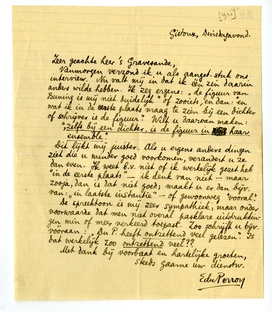 Gistoux, Dinsdagavond.
Zeer geachte heer 's Gravesande,
Vanmorgen verzond ik u als gangst stuk ons
interview. Nu valt mij in dat ik één zin daarin
anders wilde hebben. Ik zeg ergens: „de figuur van
Bening is mij niet duidelijk" of zooiets, en dan: „en
wat ik in de eerste plaats vraag te zien bij een dichter
of schrijver is de figuur". Wilt u daarvan maken:
„zelfs bij een dichter, is de figuur in haar
ensemble".
Dit lijkt mij juister. Als u ergens andere dingen
ziet die u minder goed voorkomen, verandert u ze
dan even. Ik weet b.v. niet of ik werkelijk gezet heb
„in de eerste plaats — ik denk van niet — maar
zooja, dan is dat niet goed; maakt u er dan bijv.
van: „in laatste instantie" — of gewoonweg „vooral".
De spreektoon is mij zeer sympathiek, maar onder
voorwaarde dat men niet overal pasklare uitdrukkin-
gen min of meer verkeerd toepast. Zoo schrijft u bijv.
vooraan: „Du P. heeft ontzettend veel gelezen". Is
dat werkelijk zoo ontzettend veel??
Met dank bij voorbaat en hartelijke groeten,
steeds gaarne uw dienstw.
EduPerron